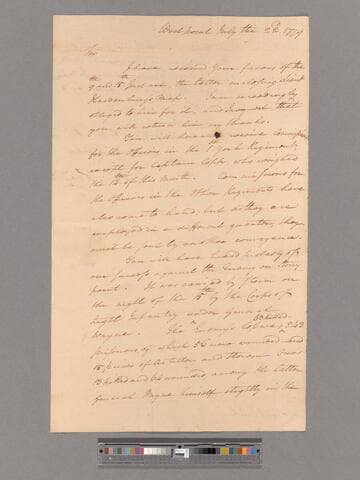 West point July the 22d. 1779
Sir
I have received your favors of the
9 and 15th Inst. the latter inclosing Lieut
Hardenberg's Map. I am exceedingly
obliged to him for it, and request that
you will return him my thanks.
You will herewith receive Commissions
for the Officers in the 1st York Regiment,
except for Captain Copp, who resigned
the of this Month. Commissions for
the Officers in the other Regiments have
also come to hand, but as they are
employed in a different quarter, they
must be sent by another conveyance.
You will have heard probably of
our success against the Enemy on Stony
point. It was carried by Storm on
the night of the 15th by the Corps of
Light Infantry under General
Wayne. The Enemy's loss was 53 killed. 543
prisoners of which 56 were wounded and
15 pieces of Artillery and thrown Ours
13 killed and 64 wounded, among the latter
General Wayne himself slightly in the